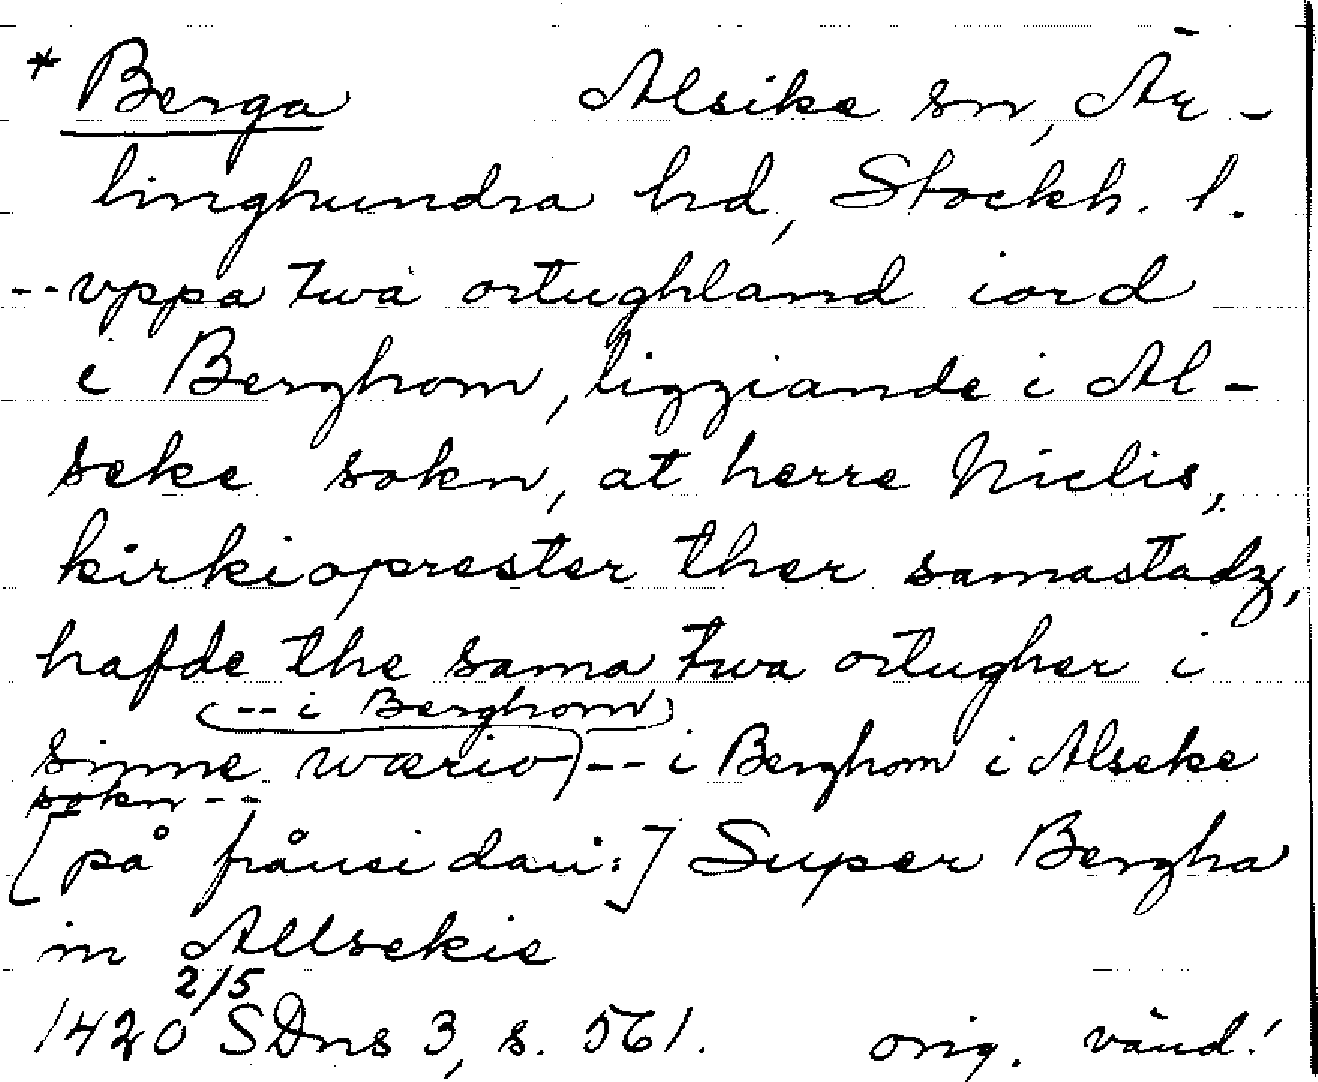 * Berga Alsike sn, Är-
linghundra hd, Stockh. l.
-- vppa twa ortughland iord
i Berghom, ligziande i Al-
seke sokn, at herre Niclis,
kirkioprester ther samastadz,
hafde the sama twa ortugher i
(-- i Berghom)
sinne wærio) -- i Berghom i Alseke
sokn --
[på frånsidan:] Super Bergha
in Allsekie
2/5
1420 SDns 3, s. 561. orig. vänd!